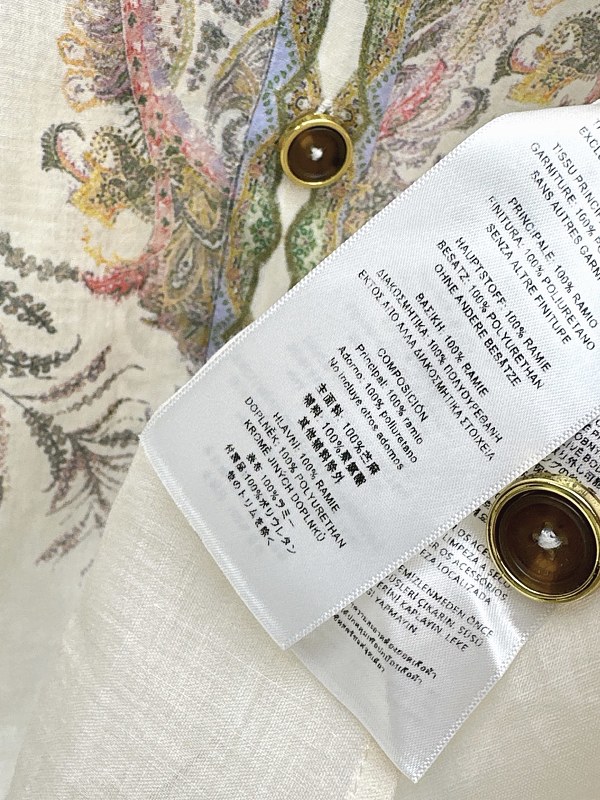 EXCLU
TISSU PRINCIP
GARNITURE: 100% P
SANS AUTRES GARNI
PRINCIPALE: 100% RAMIO
FINITURA: 100% POLIURETANO
SENZA ALTRE FINITURE
HAUPTSTOFF: 100% RAMIE
BESATZ: 100% POLYURETHAN
OHNE ANDERE BESÄTZE
ΒΑΣΙΚΗ: 100% RAMIE
ΔΙΑΚΟΣΜΗΤΙΚΑ: 100% ΠΟΛΥΟΥΡΕΘΑΝΗ
ΕΚΤΟΣ ΑΠΟ ΑΛΛΑ ΔΙΑΚΟΣΜΗΤΙΚΑ ΣΤΟΙΧΕΙΑ
COMPOSICIÓN
Principal: 100% ramio
Adorno: 100% poliuretano
No incluye otros adornos
主面料: 100%苎麻
辅料: 100%聚氨酯
其他辅料除外
HLAVNÍ: 100% RAMIE
DOPLNĚK: 100% POLYURETHAN
KROMĚ JINÝCH DOPLNKŮ
表布 100%ラミー
付属品 100%ポリウレタン
他のトリムを除く
OS ACE
IMPEZA A SE
ER OS ACESSÓRIOS
EZA LOCALIZADA
MIZLENMEDEN ÖNCE
ÜSLERİ ÇIKARIN. SÜSÜ
ERİNİ KAPLAYIN. LEKE
Sİ YAPMAYIN.